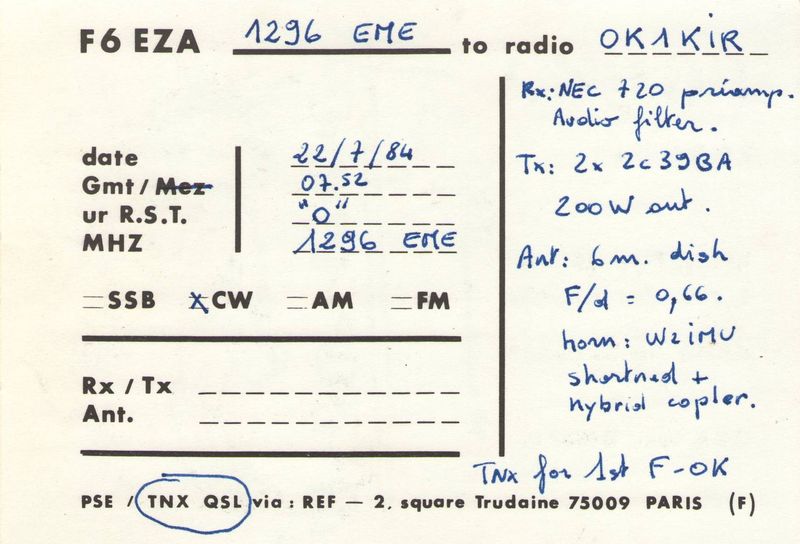 F6EZA 1296 EME to radio OK1KIR
Rx: NEC 720 préamp.
Audio filter.
Tx: 2x 2c39BA
200W out.
Ant: 6m. dish
F/d = 0,66.
horn: W2iMU
shortned +
hybrid copler.
TNx for 1st F-OK
date 22/7/84
Gmt / Mez 07.52
ur R.S.T. "O"
MHZ 1296 EME
SSB X CW AM FM
Rx / Tx
Ant.
PSE / TNX QSL via : REF — 2, square Trudaine 75009 PARIS (F)